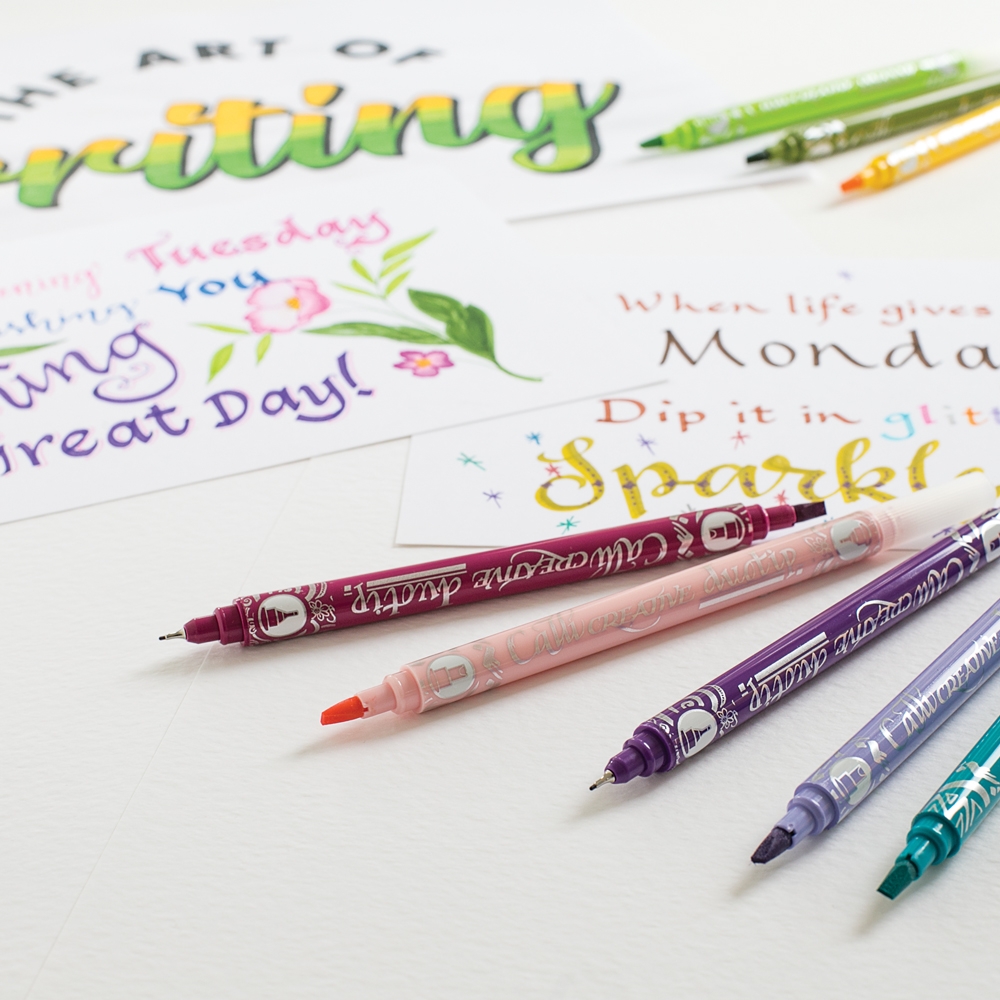 THE ART OF
writing
Tuesday
You
Great Day!
When life gives
Monda
Dip it in glitt
Sparkl
Calli CREATIVE duotip
Calli CREATIVE duotip
Calli CREATIVE duotip
Calli CREATIVE